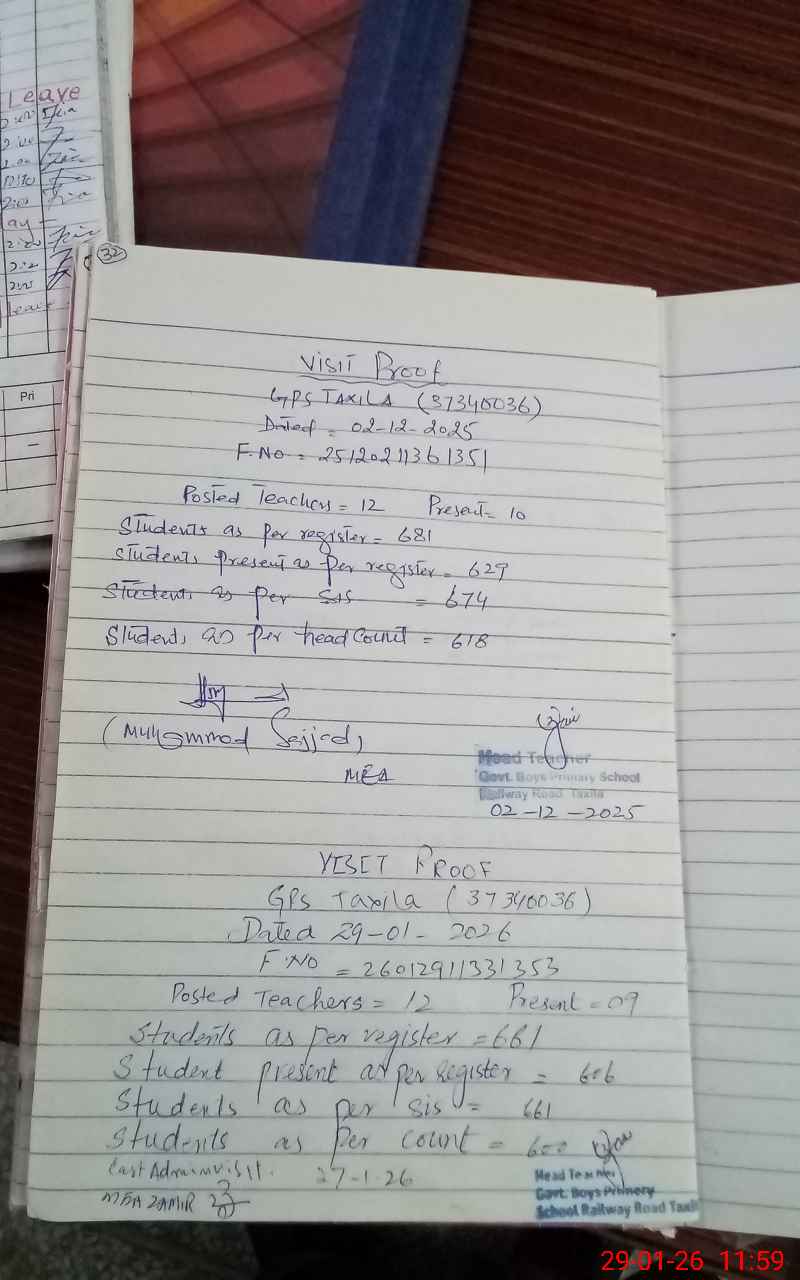 Leave
Pri
32
Visit Proof
GPS TAXILA (37340036)
Dated = 02-12-2025
F.No = 25120211361351
Posted Teachers = 12 Present = 10
Students as per register = 681
Students present as per register = 629
Students as per SIS = 674
Students as per head Count = 618
(Muhammad Sajjad)
MEA
Head Teacher
Govt. Boys Primary School
Railway Road Taxila
02-12-2025
VISIT PROOF
GPS Taxila (37340036)
Dated 29-01-2026
F.NO = 26012911331353
Posted Teachers = 12 Present = 09
Students as per register = 661
Student present as per register = 606
Students as per sis = 661
Students as per count = 600
Last Admin visit. 27-1-26
MEA ZAMIR
Head Teacher
Govt. Boys Primery
School Railway Road Taxila
29-01-26 11:59